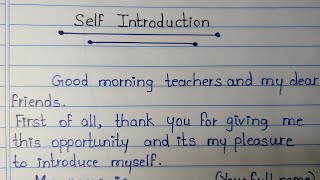 Self Introduction
Good morning teachers and my dear
friends.
First of all, thank you for giving me
this opportunity and its my pleasure
to introduce myself.
My name is (Your full name)